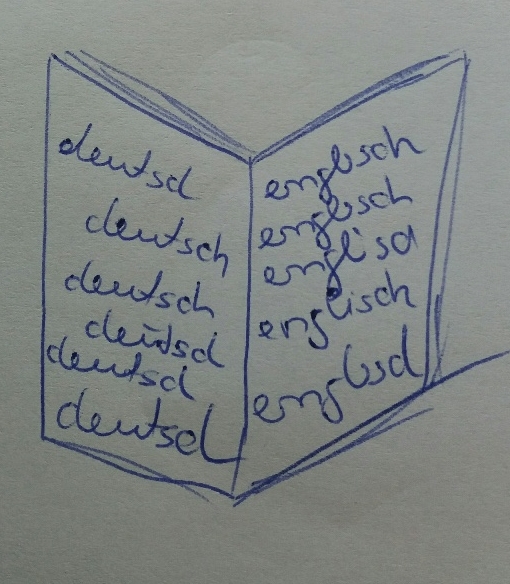 deutsch
deutsch
deutsch
deutsch
deutsch
deutsch
englisch
englisch
englisch
englisch
englisch